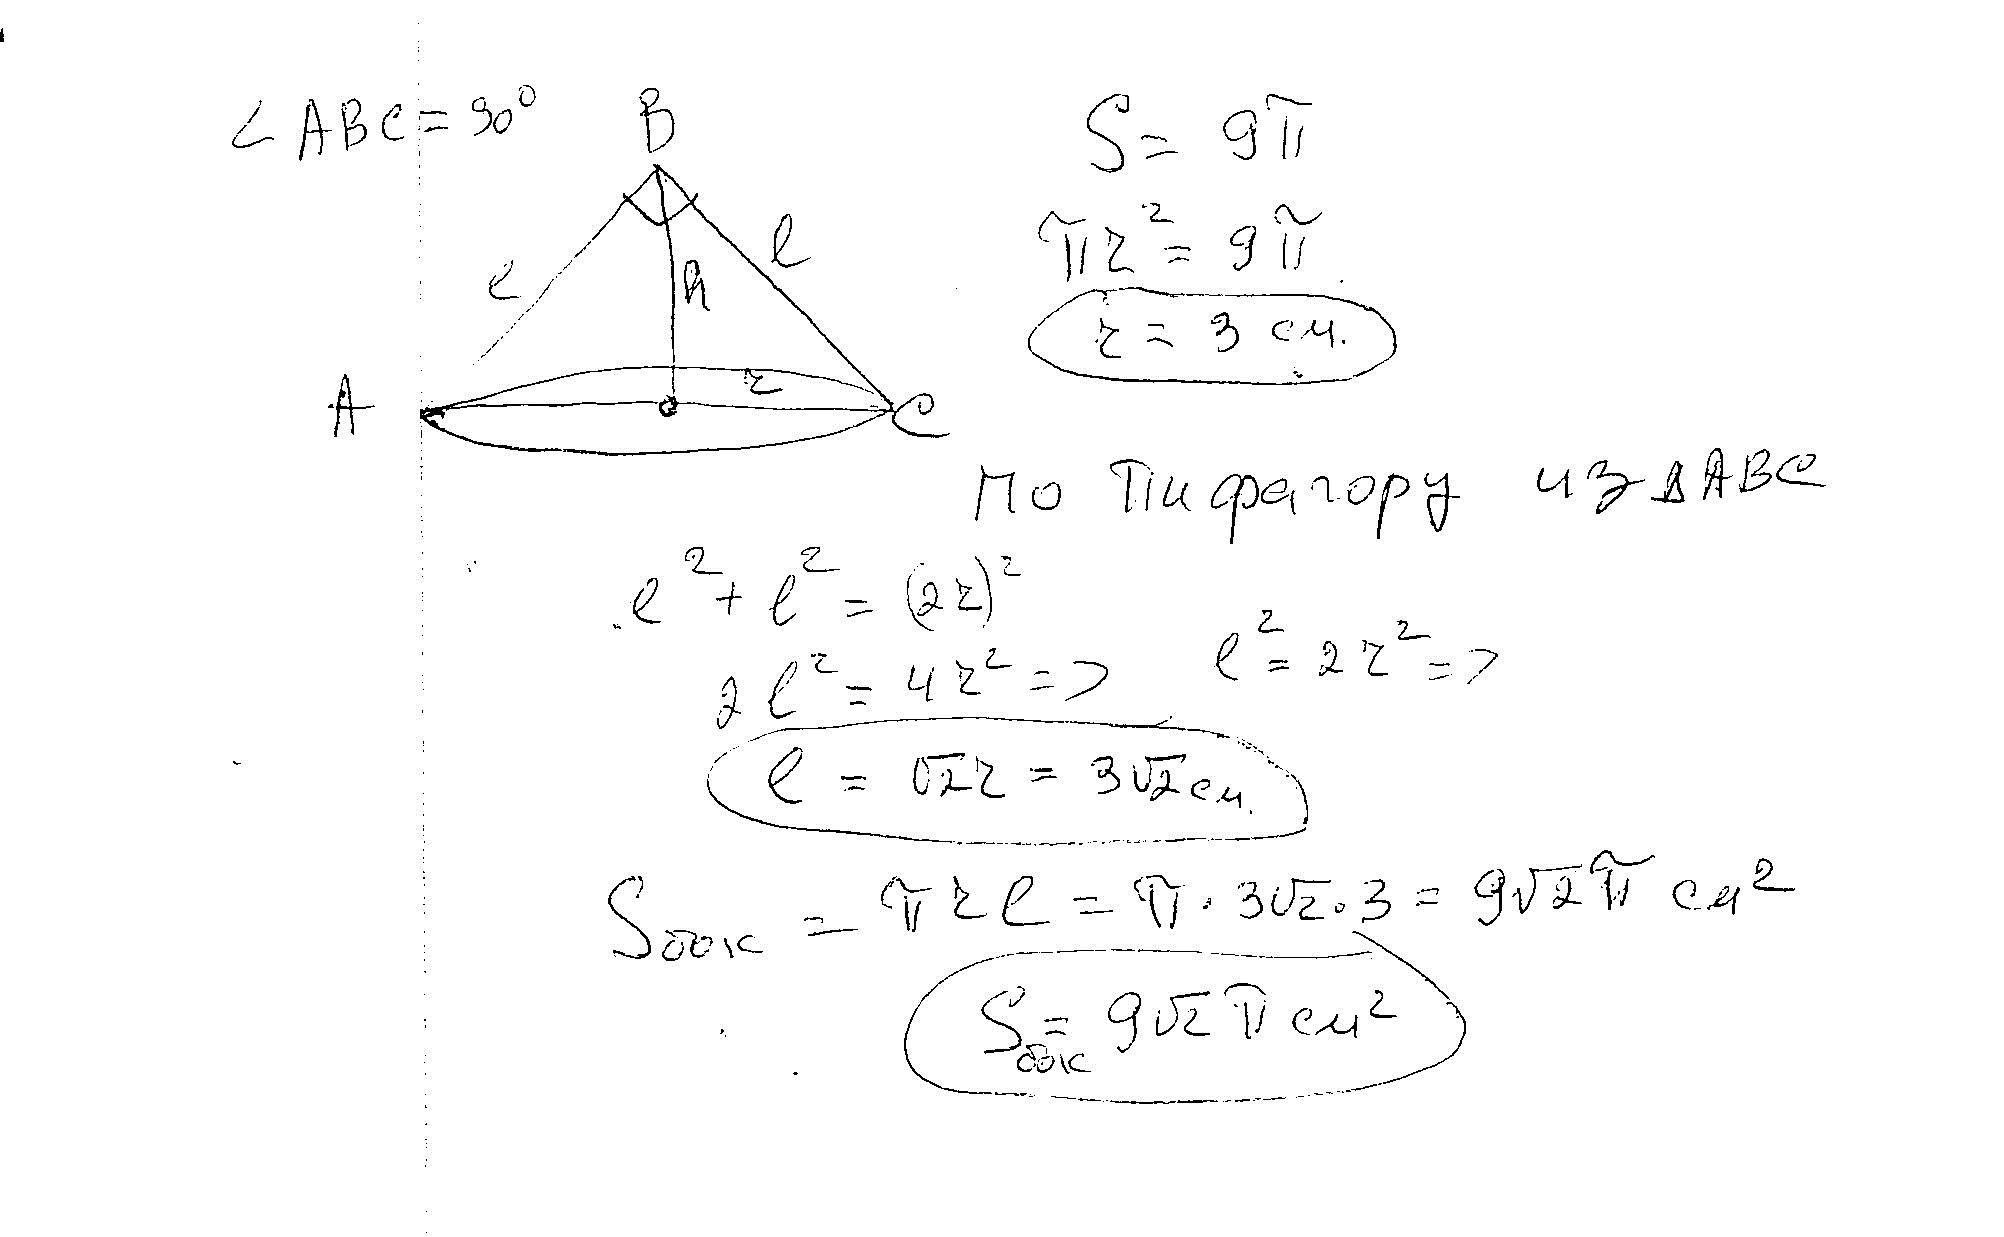 ∠ABC = 90°
B
S = 9π
πr² = 9π
e
h
l
r = 3 см.
A
r
C
По Пифагору из ΔABC
l² + l² = (2r)²
2l² = 4r² => l² = 2r² =>
l = √2r = 3√2 см.
Sбок = πrl = π · 3√2 · 3 = 9√2π см²
Sбок = 9√2π см²